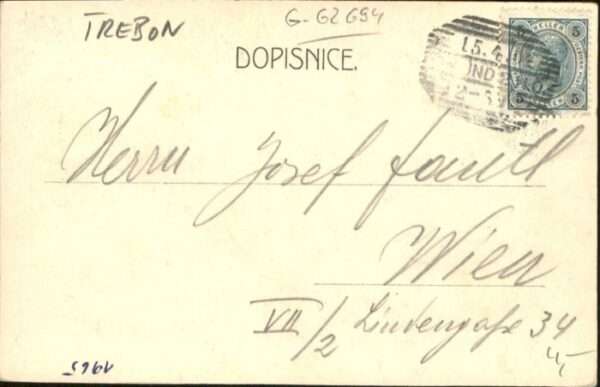 TREBON
G-G2694
DOPISNICE.
5 HELLER 5
15.4
2-3
Herrn Josef Fantl
Wien
VII/2 Lindengaße 34
1965